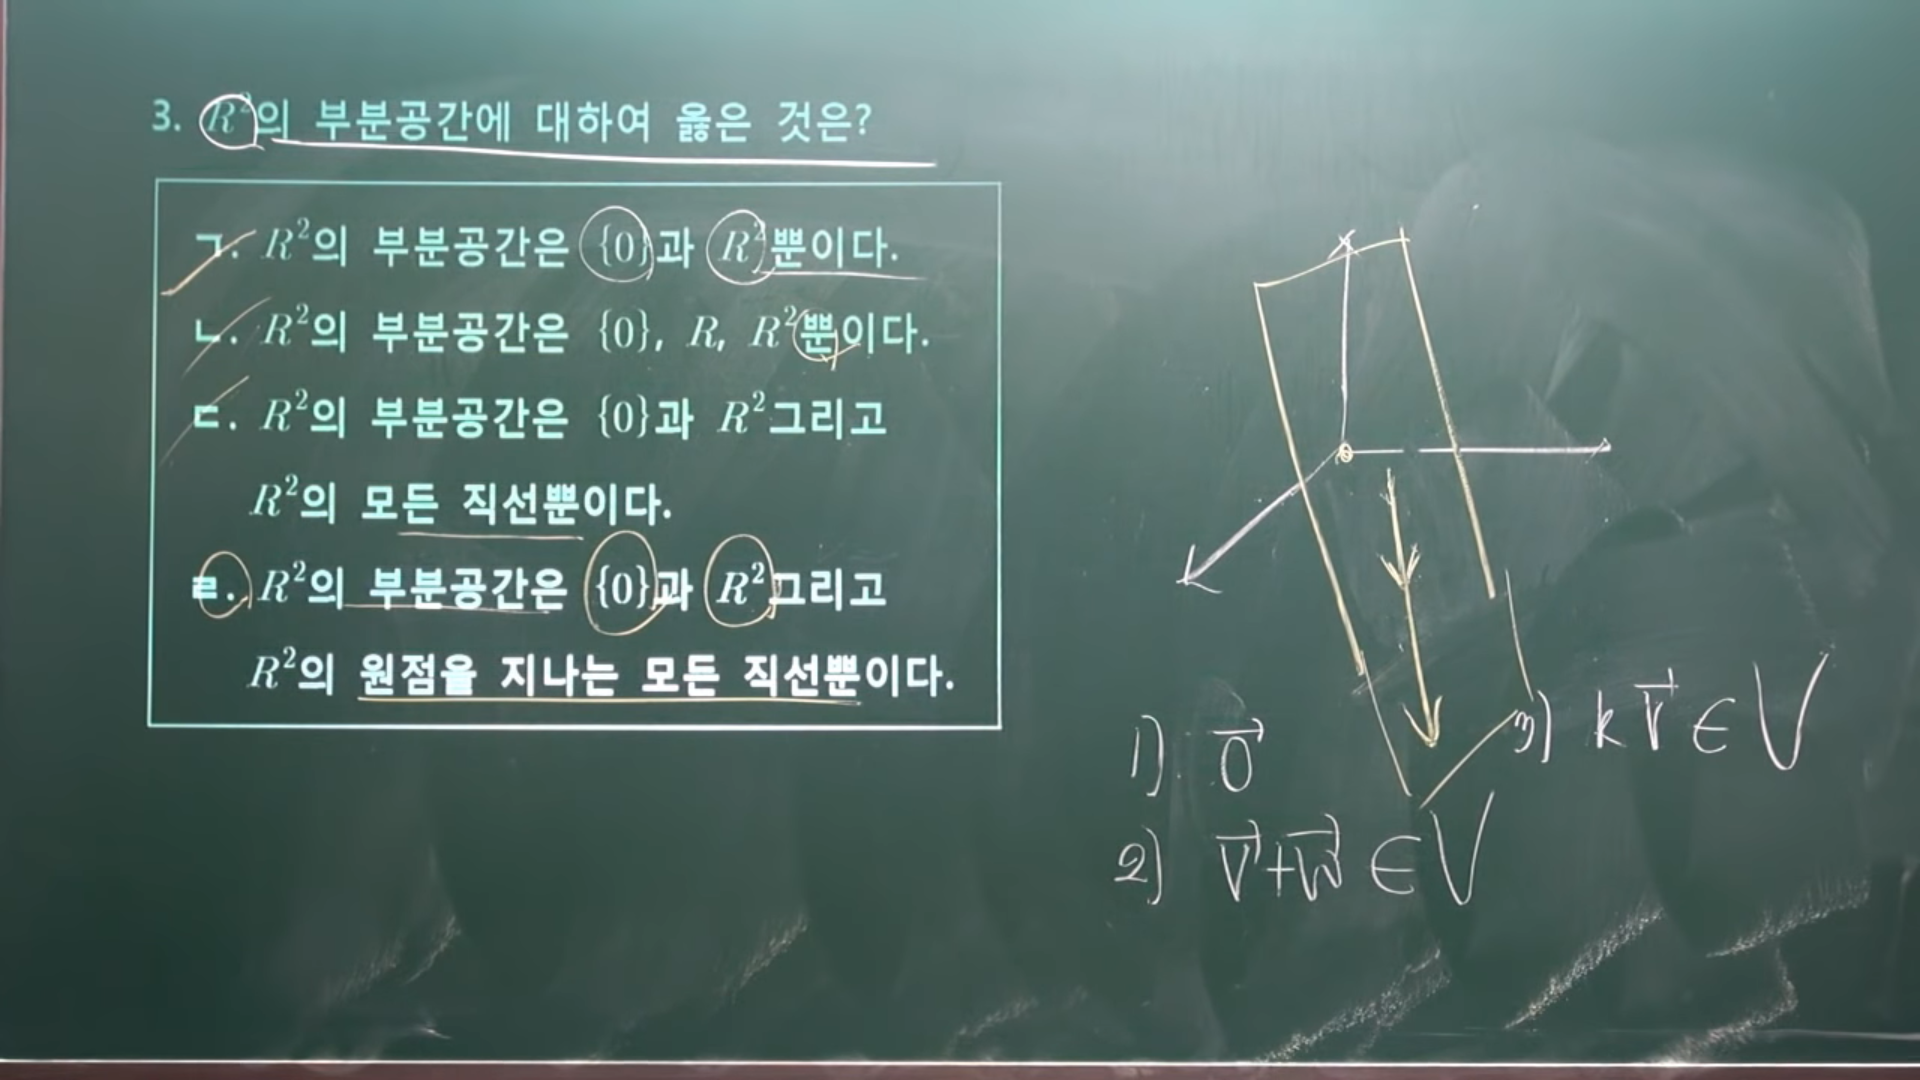 3. R²의 부분공간에 대하여 옳은 것은?
ㄱ. R²의 부분공간은 {0}과 R²뿐이다.
ㄴ. R²의 부분공간은 {0}, R, R²뿐이다.
ㄷ. R²의 부분공간은 {0}과 R²그리고
R²의 모든 직선뿐이다.
ㄹ. R²의 부분공간은 {0}과 R²그리고
R²의 원점을 지나는 모든 직선뿐이다.
1) 0⃗
2) v⃗+w⃗ ∈ V
3) kv⃗ ∈ V